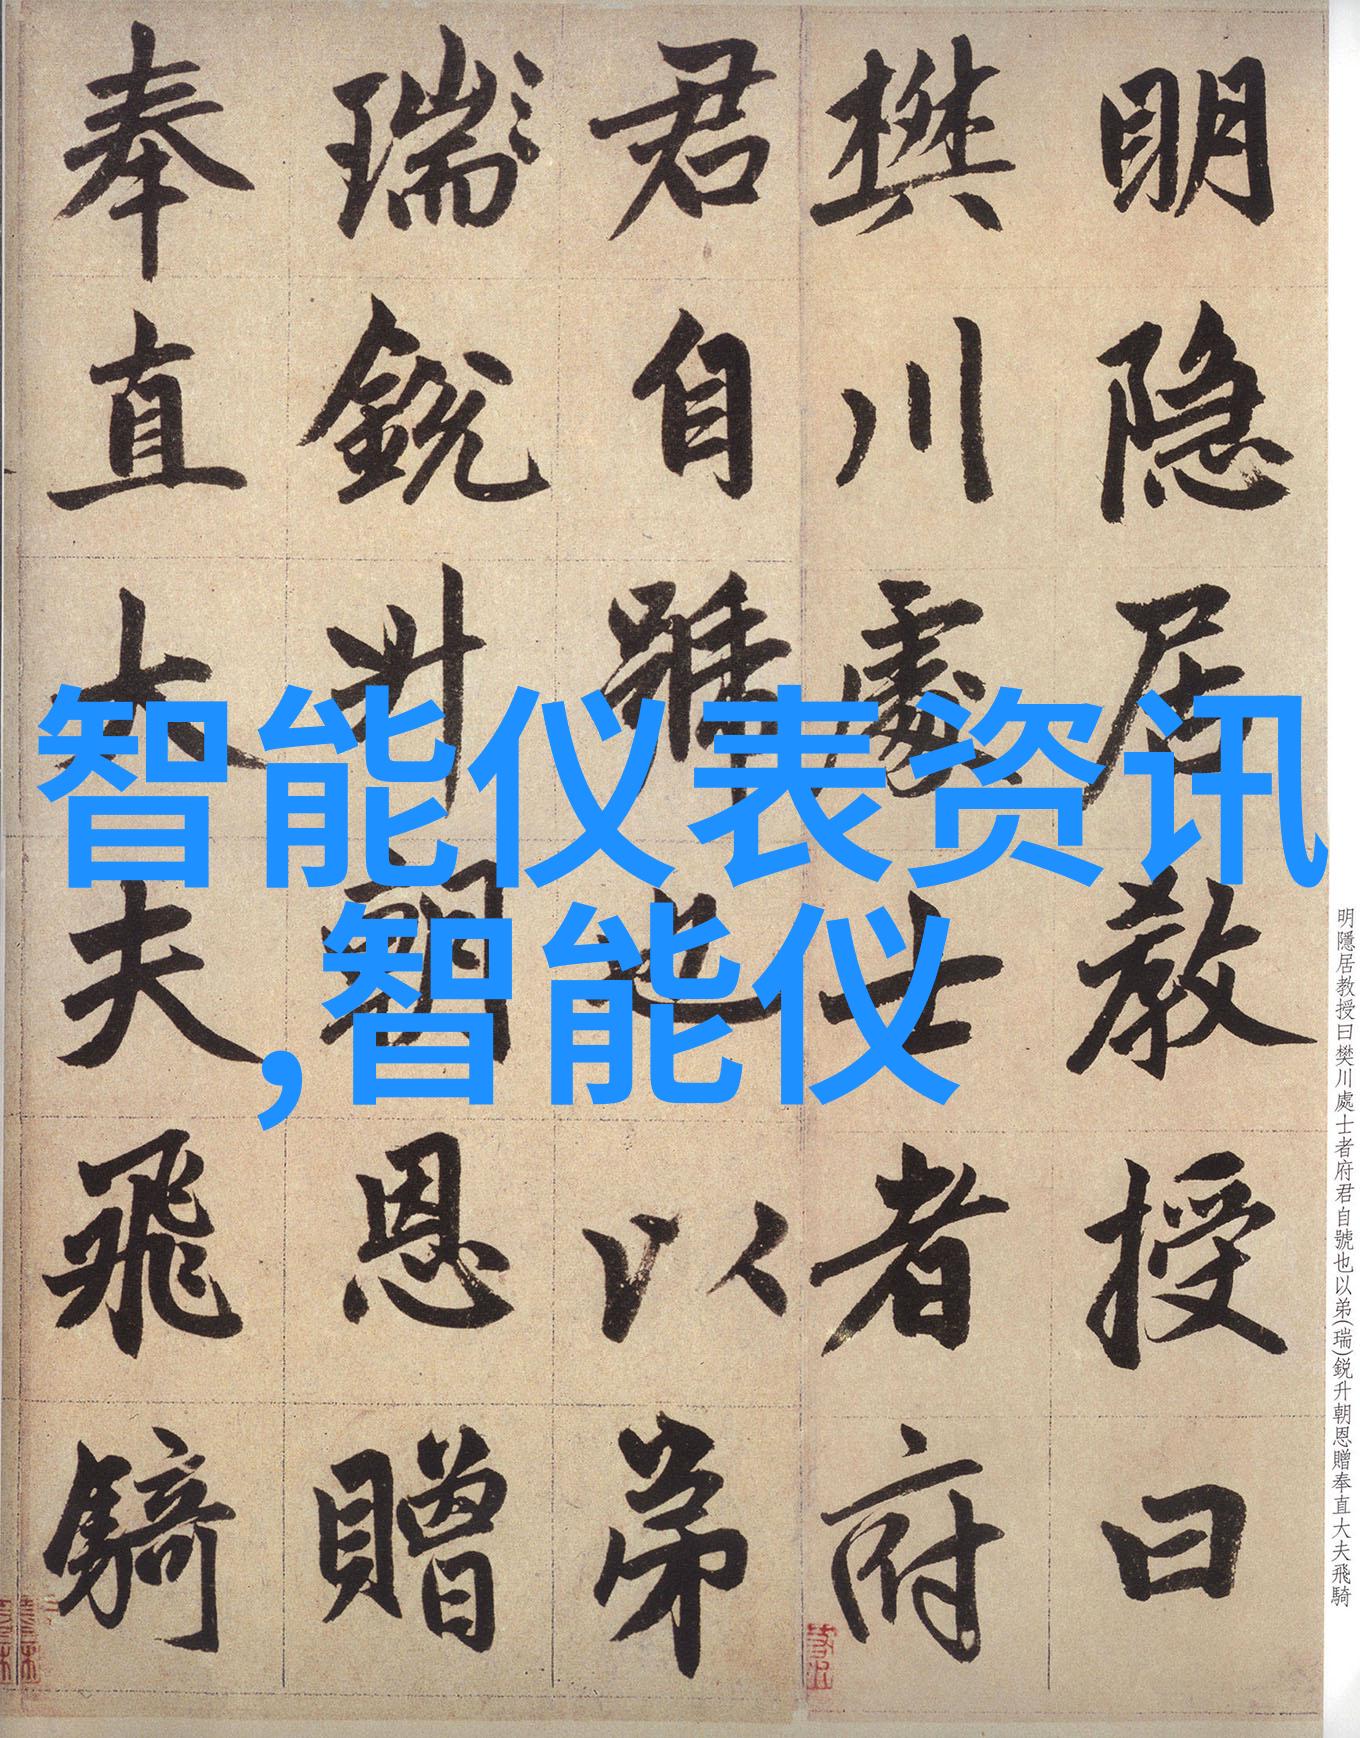 明隐居教授曰
樊川處士者府
君自號也以弟
瑞鋭升朝恩贈
奉直大夫飛騎
智能仪表资讯
,智能仪
明隱居教授曰樊川處士者府君自號也以弟(瑞)鋭升朝恩贈奉直大夫飛騎